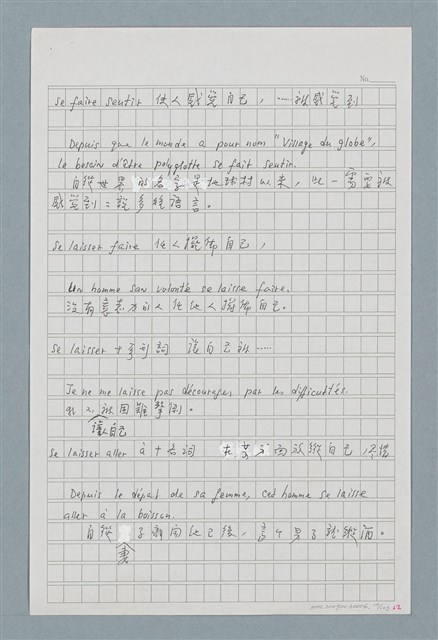 No.
se faire sentir 使人感覺自己，……被感覺到
Depuis que le monde a pour nom "Village du globe",
le besoin d'être polyglotte se fait sentir.
自從世界的名字是地球村以來，此一需要被
感覺到：說多種語言。
se laisser faire 任人擺佈自己，
Un homme san volonté se laisse faire.
沒有意志力的人任他人擺佈自己。
se laisser + 動詞 讓自己被……
Je ne me laisse pas décourager par les difficultés.
我不被困難擊倒。
讓自己
se laisser aller à + 名詞 在某方面放縱自己
Depuis le départ de sa femme, cet homme se laisse
aller à la boisson.
自從子離開他之後，這個男子就縱酒。
妻